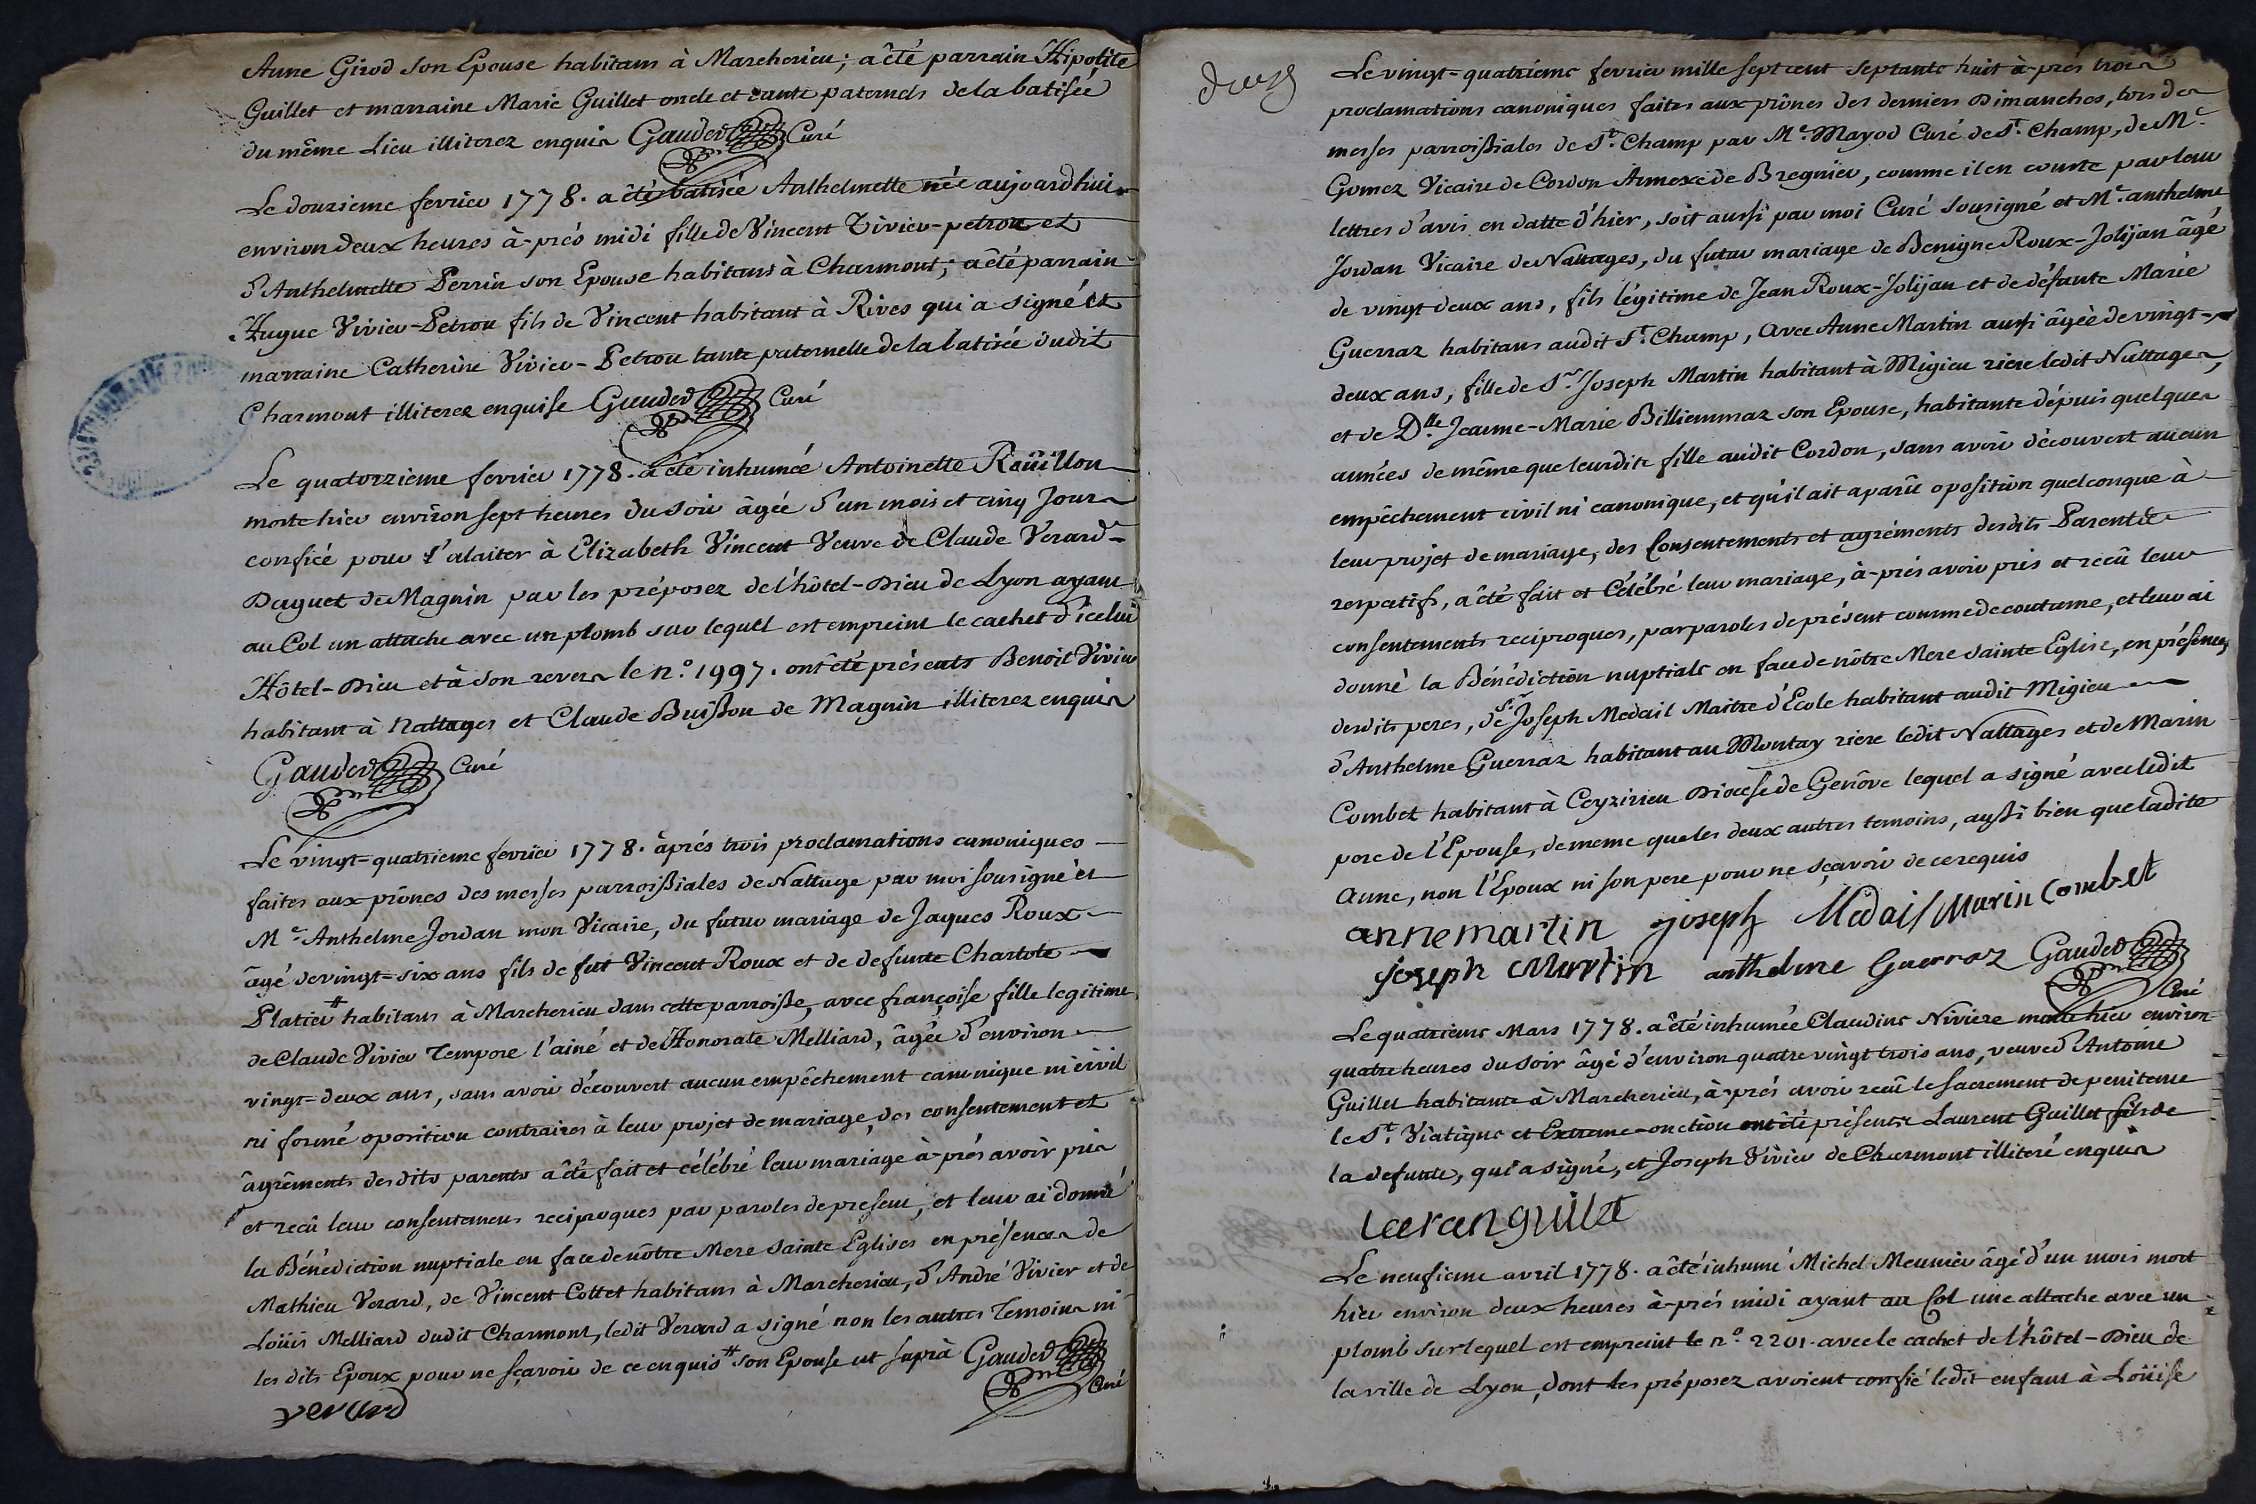 Anne Girod son Epouse habitans à Marcherieu; a êté parrain Hipolite
Guillet et marraine Marie Guillet oncle et tante paternels de la batisée
du même Lieu illiterez enquis Gauded Curé
Le douzieme fevrier 1778. a êté batisée Anthelmette née aujourd'hui
environ deux heures à-prés midi fille de Vincent Vivier-petrou et
d'Anthelmette Perrin son Epouse habitans à Charmont; a êté parrain
Hugue Vivier-Petrou fils de Vincent habitant à Rives qui a signé et
marraine Catherine Vivier-Petrou tante paternelle de la batisée dudit
Charmont illiterez enquise Gauded Curé
Le quatorzieme fevrier 1778. a êté inhumée Antoinette Roüillon
morte hier environ sept heures du soir âgée d'un mois et cinq Jours
confiée pour l'alaiter à Elizabeth Vincent Veuve de Claude Verard
Daguet de Magnin par les préposez de l'hôtel-Dieu de Lyon ayant
au Col un attache avec un plomb sur lequel est empreint le cachet d'icelui
Hôtel-Dieu et à son revers le n.o 1997. ont êté présents Benoit Vivier
habitant à Nattages et Claude Buisson de Magnin illiterez enquis
Gauded Curé
Le vingt=quatrieme fevrier 1778. âprés trois proclamations canoniques
faites aux prônes des messes parroissiales de Nattage par moi sousigné et
M.e Anthelme Jordan mon Vicaire, du futur mariage de Jaques Roux
âgé de vingt=six ans fils de fut Vincent Roux et de defunte Charlote
Platier # habitans à Marcherieu dans cette parroisse, avec françoise fille legitime
de Claude Vivier Tempore l'ainé et de Honorate Melliard, âgée d'environ
vingt=deux ans, sans avoir découvert aucun empêchement canonique ni civil
ni formé oposition contraires à leur projet de mariage, des consentement et
âgrêments desdits parents a êté fait et célébré leur mariage à-prés avoir pris
et recû leur consentemens reciproques par paroles de present, et leur ai donné
la Bénédiction nuptiale en face de nôtre Mere Sainte Eglises en présences de
Mathieu Verard, de Vincent Cottet habitans à Marcherieu, d'André Vivier et de
Loüis Melliard dudit Charmont, ledit Verard a signé non les autres Temoins ni
les dits Epoux pour ne sçavoir de ce enquis # son Epouse ut suprà Gauded
Curé
verard
Le vingt=quatrieme fevrier mille sept cent septante huit à-prés trois
proclamations canoniques faites aux prônes des derniers Dimanches, lors des
messes parroissiales de S.t Champ par M.e Mayod Curé de S.t Champ, de M.e
Gomez Vicaire de Cordon Annexe de Bregnier, comme il en conste par leur
lettres d'avis en datte d'hier, soit aussi par moi Curé sousigné et M.e anthelme
Jordan Vicaire de Nattages, du futur mariage de Benigne Roux-Jolijan âgé
de vingt deux ans, fils légitime de Jean Roux-Jolijan et de défunte Marie
Guerraz habitans audit S.t Champ, avec Anne Martin aussi âgée de vingt=
deux ans, fille de S.r Joseph Martin habitant à Migieu riere ledit Nattages,
et de D.lle Jeanne-Marie Billiemmaz son Epouse, habitante dépuis quelques
années de même que leurdite fille audit Cordon, sans avoir découvert aucun
empêchement civil ni canonique, et qu'il ait aparû oposition quelconque à
leur projet de mariage, des Consentements et agréments desdits Parents
respectifs, a êté fait et Célébré leur mariage, à-prés avoir pris et recû leur
consentements reciproques, par paroles de présent comme de coutume, et leur ai
donné la Bénédiction nuptiale en face de nôtre Mere Sainte Eglise, en présences
desdits peres, de S.r Joseph Medail Maitre d'Ecole habitant audit Migieu
d'Anthelme Guerraz habitant au Montay riere ledit Nattages et de Marin
Combet habitant à Ceyzirieu Diocese de Genêve lequel a signé avec ledit
pere de l'Epouse, de meme que les deux autres temoins, aussi bien que ladite
Anne, non l'Epoux ni son pere pour ne sçavoir de ce requis
anne martin joseph Medail Marin Combet
joseph Martin anthelme Guerraz Gauded
Curé
Le quatrieme Mars 1778. a êté inhumée Claudine Niviere morte hier environ
quatre heures du soir âgé d'environ quatre vingt trois ans, veuve d'Antoine
Guillet habitante à Marcherieu, à-prés avoir recû le sacrement de penitence
le S.t Viatique et Extreme-onction ont êté présents Laurent Guillet fils de
la defunte, qui a signé, et Joseph Vivier de Charmont illiteré enquis
laranguilet
Le neufieme avril 1778. a êté inhumé Michel Meunier âgé d'un mois mort
hier environ deux heures à-prés midi ayant au Col une attache avec un
plomb sur lequel est empreint le n.o 2201. avec le cachet de l'hôtel-Dieu de
la ville de Lyon, dont les préposez avoient confié ledit enfant à Loüise